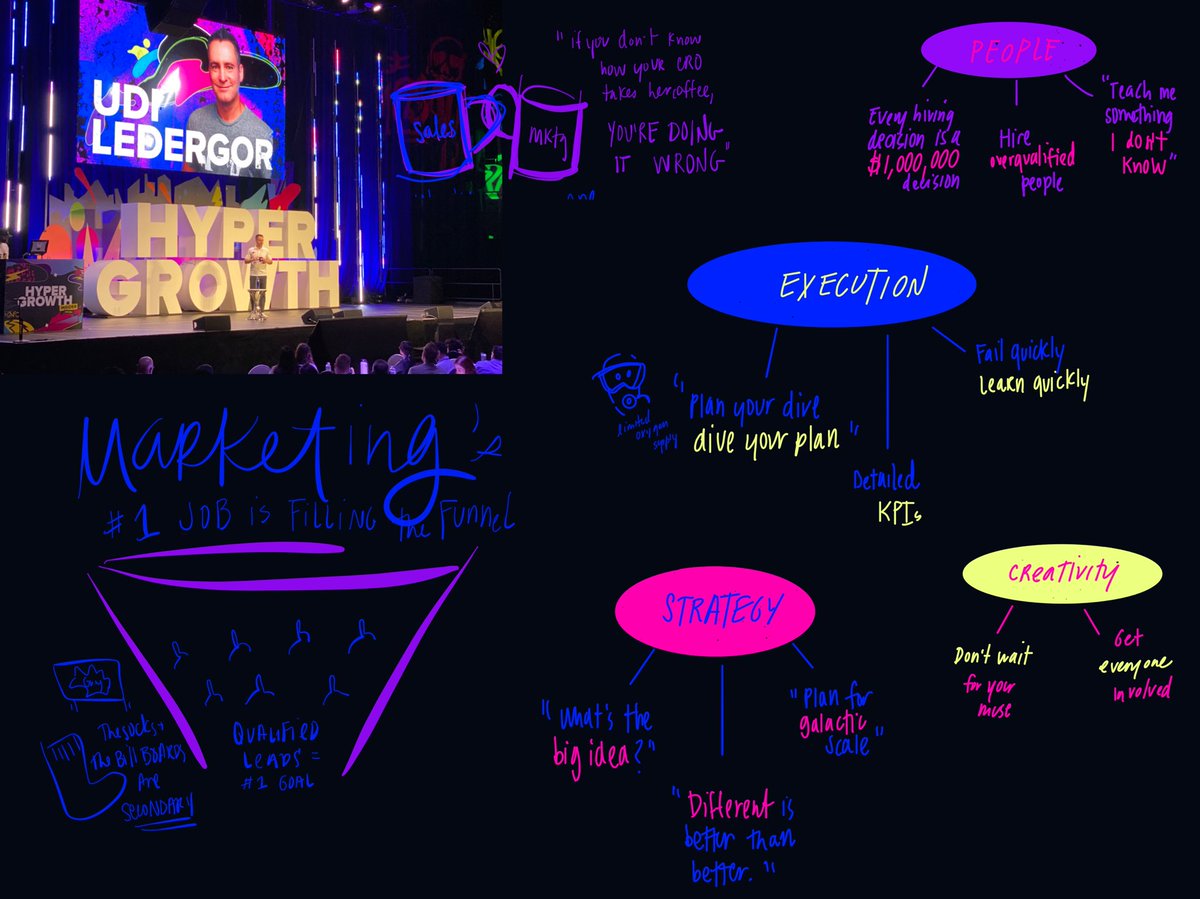 UDI
LEDERGOR
HYPER
GROWTH
HYPER
GROWTH
Sales
Mktg
"if you don't know
how your CRO
takes her coffee,
YOU'RE DOING
IT WRONG"
PEOPLE
Every hiring
decision is a
$1,000,000
decision
Hire
overqualified
people
"Teach me
something
I don't
know"
EXECUTION
limited
oxygen
supply
"Plan your dive
dive your plan"
Detailed
KPIs
Fail quickly
Learn quickly
Marketing's
#1 JOB is Filling the Funnel
The socks +
The BillBOARDS
Are
SECONDARY
QUALIFIED
LEADS =
#1 GOAL
STRATEGY
"What's the
big idea?"
"Different is
better than
better."
"Plan for
galactic
scale"
Creativity
Don't wait
for your
muse
Get
everyone
involved